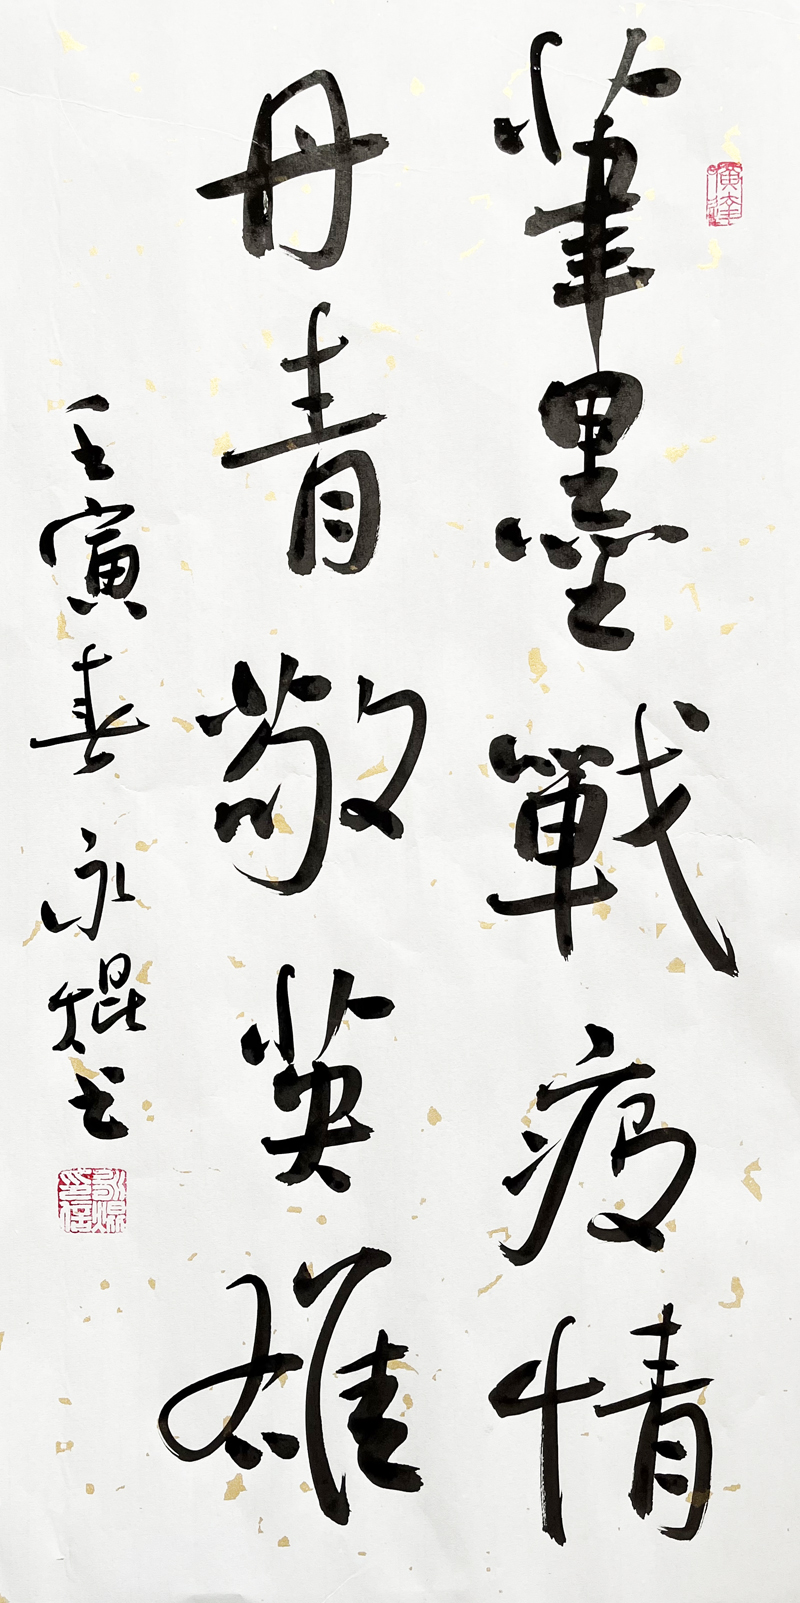 筆墨戰疫情
丹青敬英雄
壬寅春永焜书